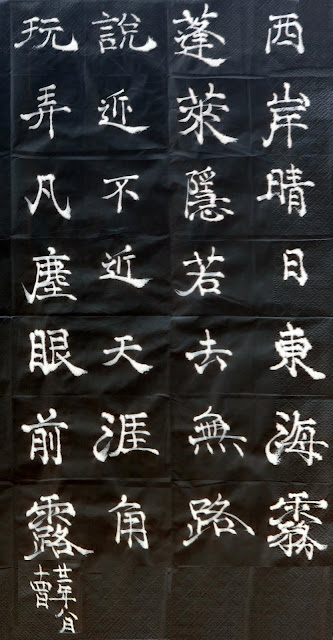 西岸晴日東海霧
蓬萊隱若去無路
說近不近天涯角
玩弄凡塵眼前露